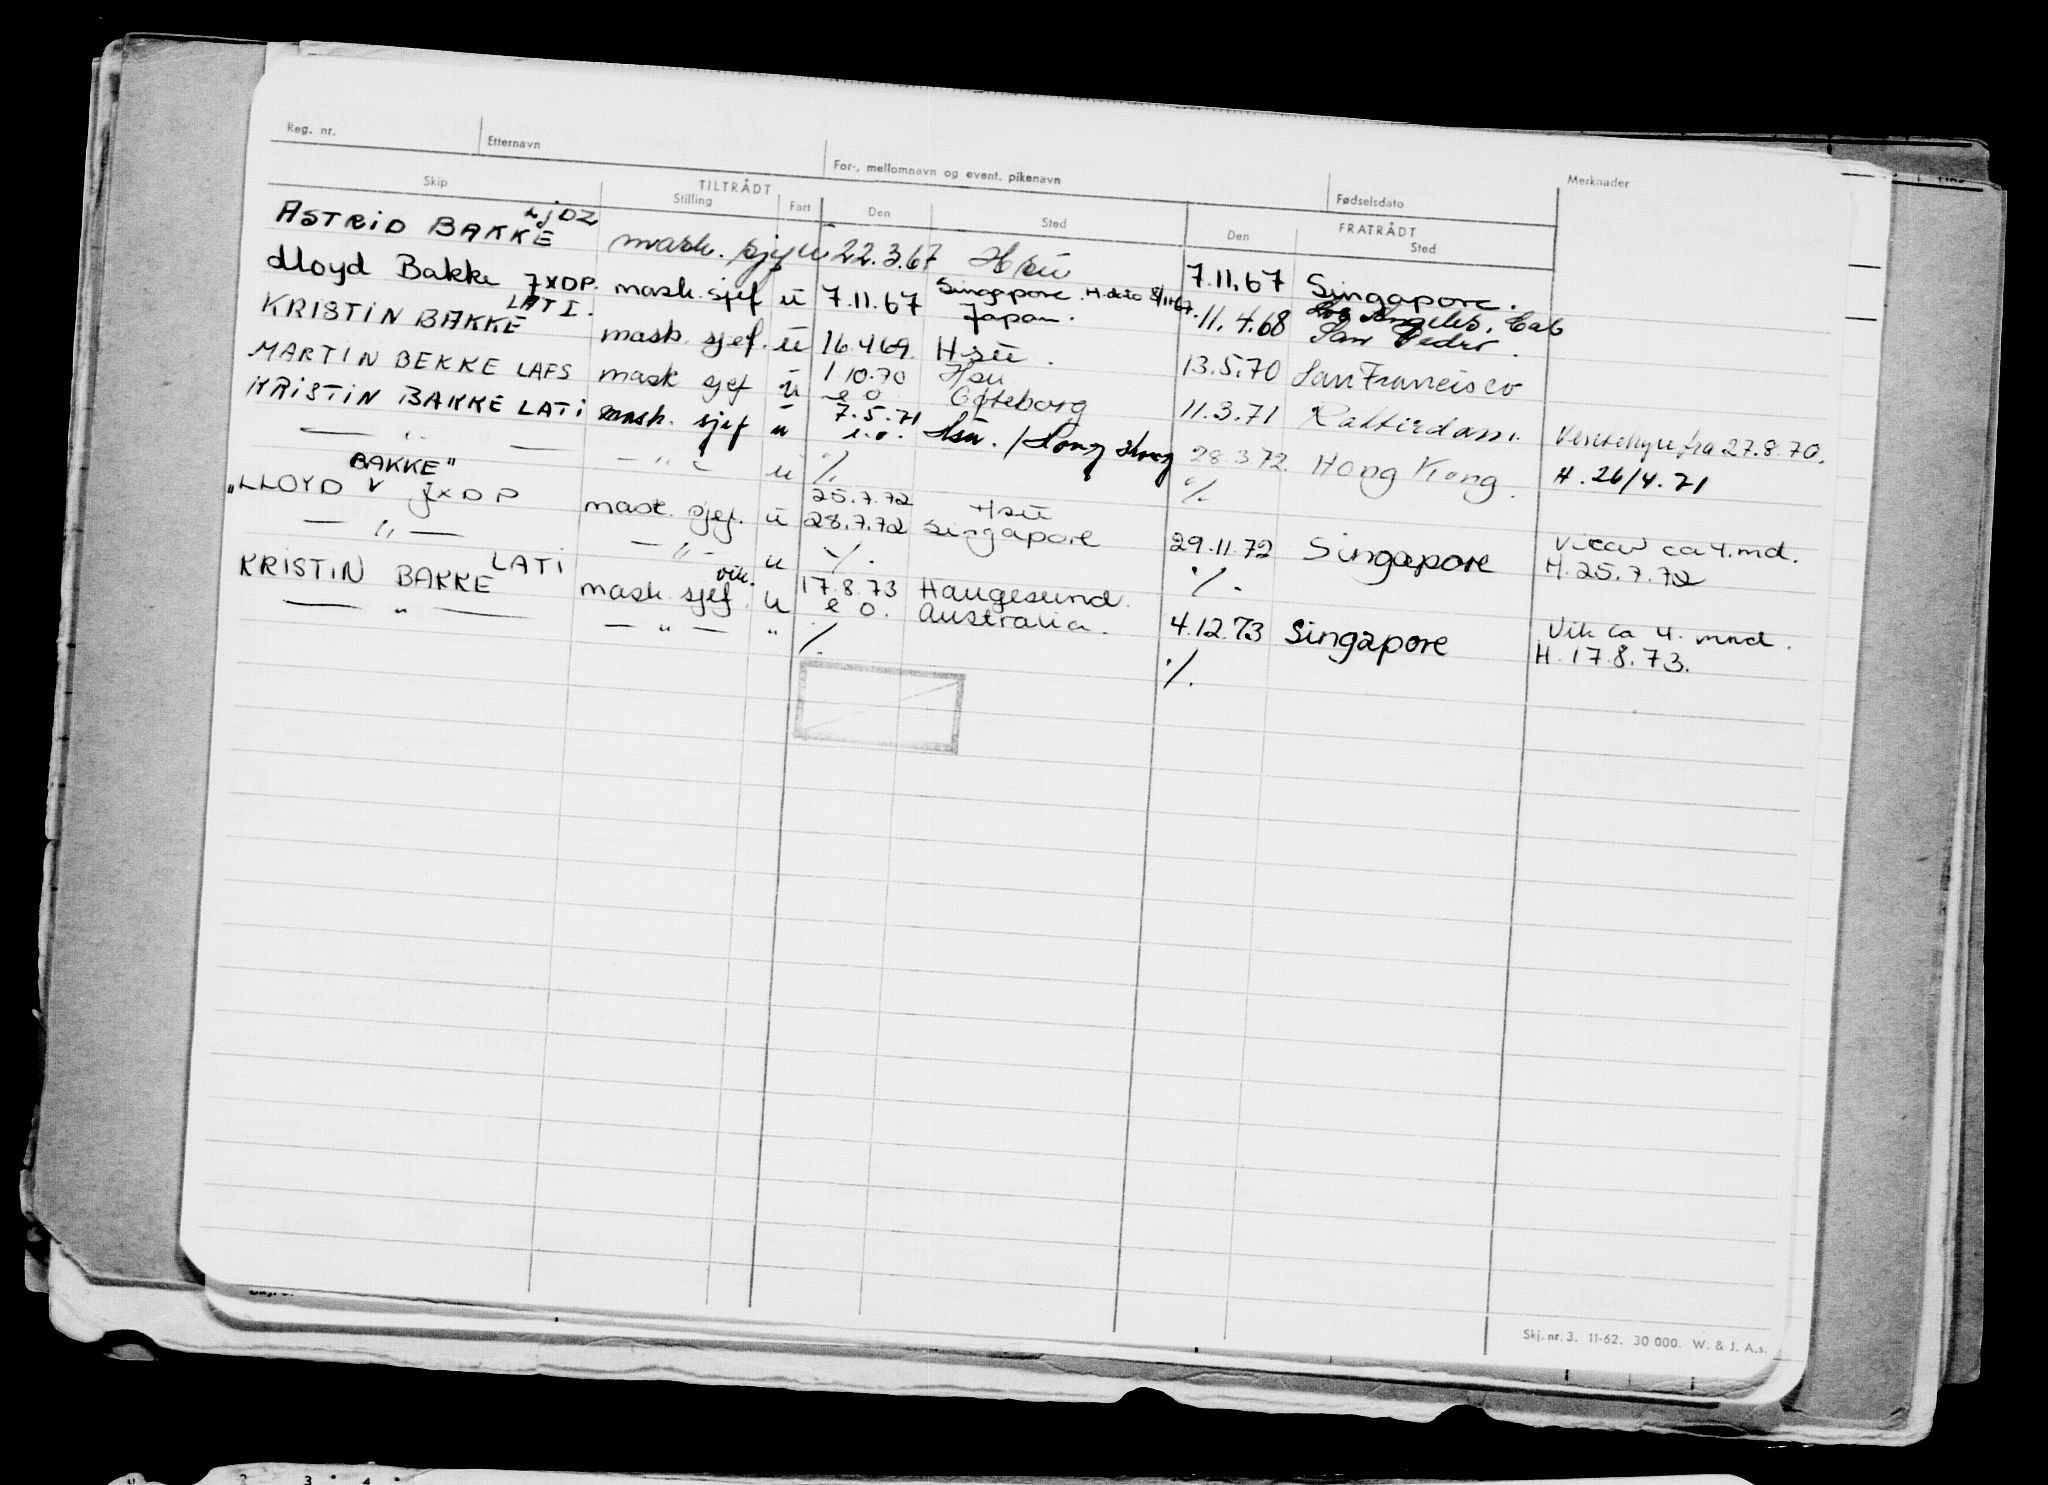 Reg. nr. Etternavn For-, mellomnavn og event. pikenavn Fødselsdato Merknader
Skip TILTRÅDT FRATRÅDT
Stilling Fart Den Sted Den Sted
ASTRID BAKKE LJDZ mask. sjef u 22.3.67 Hsu 7.11.67 Singapore.
Lloyd Bakke JXDP. mask. sjef u 7.11.67 Singapore. H.dato 8/11-67. Japan. 11.4.68 Los Angeles, Cal San Pedro.
KRISTIN BAKKE LATI. mask. sjef. u 16.4.69. Hsu. 13.5.70 San Francisco
MARTIN BEKKE LAFS mask sjef u 1 10.70 Hsu e o Göteborg 11.3.71 Rotterdam. Ventehyre fra 27.8.70.
KRISTIN BAKKE LATI mask. sjef u 7.5.71 e.o. Hsu. / Hong Kong 28.3.72. Hong Kong. H. 26/4.71
— " — — " — u % %
"LLOYD BAKKE" JXDP mask. sjef. u 25.7.72 Hsu 28.7.72 Singapore 29.11.72 Singapore Vikar ca 4. md. H. 25.7.72
— " — — " — u %. %.
KRISTIN BAKKE LATI mask sjef vik. u 17.8.73 Haugesund. e o. Australia. 4.12.73 Singapore Vik ca 4. mnd. H. 17.8.73.
— " — — " — " %. %.
Skj. nr. 3. 11-62. 30 000. W. & J. A.s.